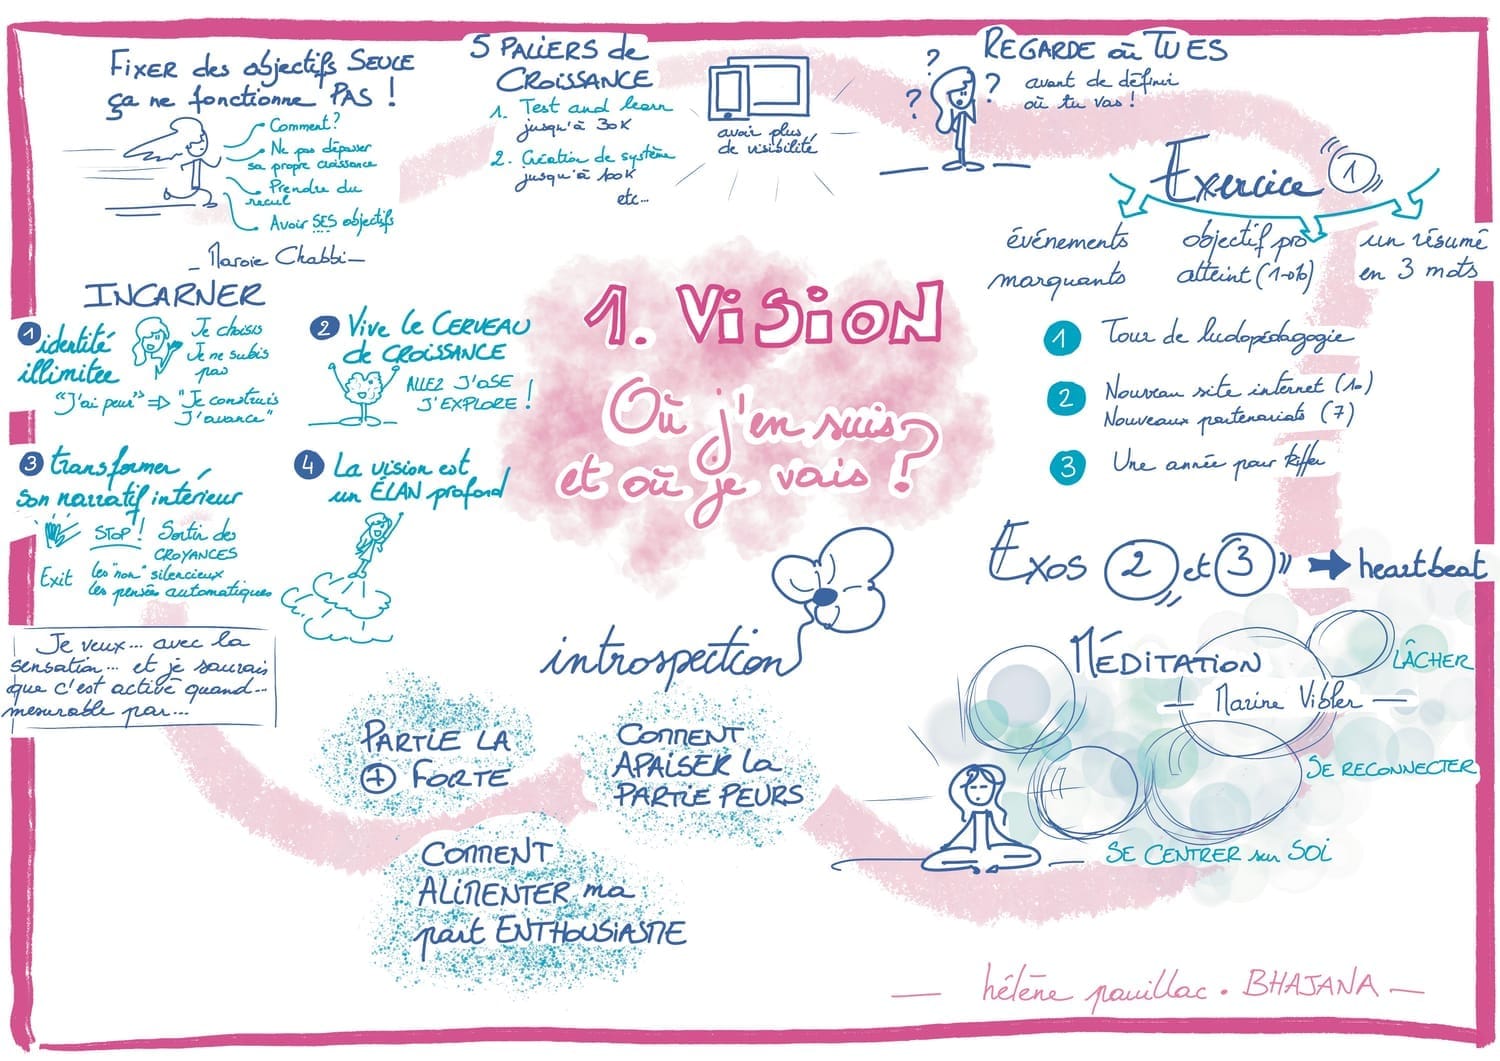 FIXER des objectifs SEULE
ça ne fonctionne PAS !
Comment?
Ne pas dépasser
sa propre croissance
Prendre du
recul
Avoir SES objectifs
5 PALIERS de
CROISSANCE
1. Test and learn
jusqu'à 30K
2. Création de système
jusqu'à 100K
etc...
avoir plus
de visibilité
REGARDE où TU ES
avant de définir
où tu vas !
? ? ?
Exercice 1
événements
marquants
objectif pro
atteint (1→10)
un résumé
en 3 mots
1 Tour de ludopédagogie
2 Nouveau site internet (10)
Nouveaux partenariats (7)
3 Une année pour kiffer
Exos 2 et 3 → heartbeat
1. VISION
Où j'en suis
et où je vais ?
INCARNER
1 identité
illimitée
Je choisis
Je ne subis
pas
"J'ai peur" => "Je construis
J'avance"
2 Vive le CERVEAU
de CROISSANCE
ALLEZ J'OSE
J'EXPLORE !
3 transformer
son narratif intérieur
STOP ! Sortir des
CROYANCES
Exit les "non" silencieux
les pensées automatiques
4 La vision est
un ÉLAN profond
Je veux... avec la
sensation... et je saurais
que c'est activé quand...
mesurable par...
introspection
PARTIE LA
+ FORTE
COMMENT
APAISER la
PARTIE PEURS
COMMENT
ALIMENTER ma
part ENTHOUSIASME
MÉDITATION
LÂCHER
SE RECONNECTER
SE CENTRER sur SOI
hélène pouillac . BHAJANA